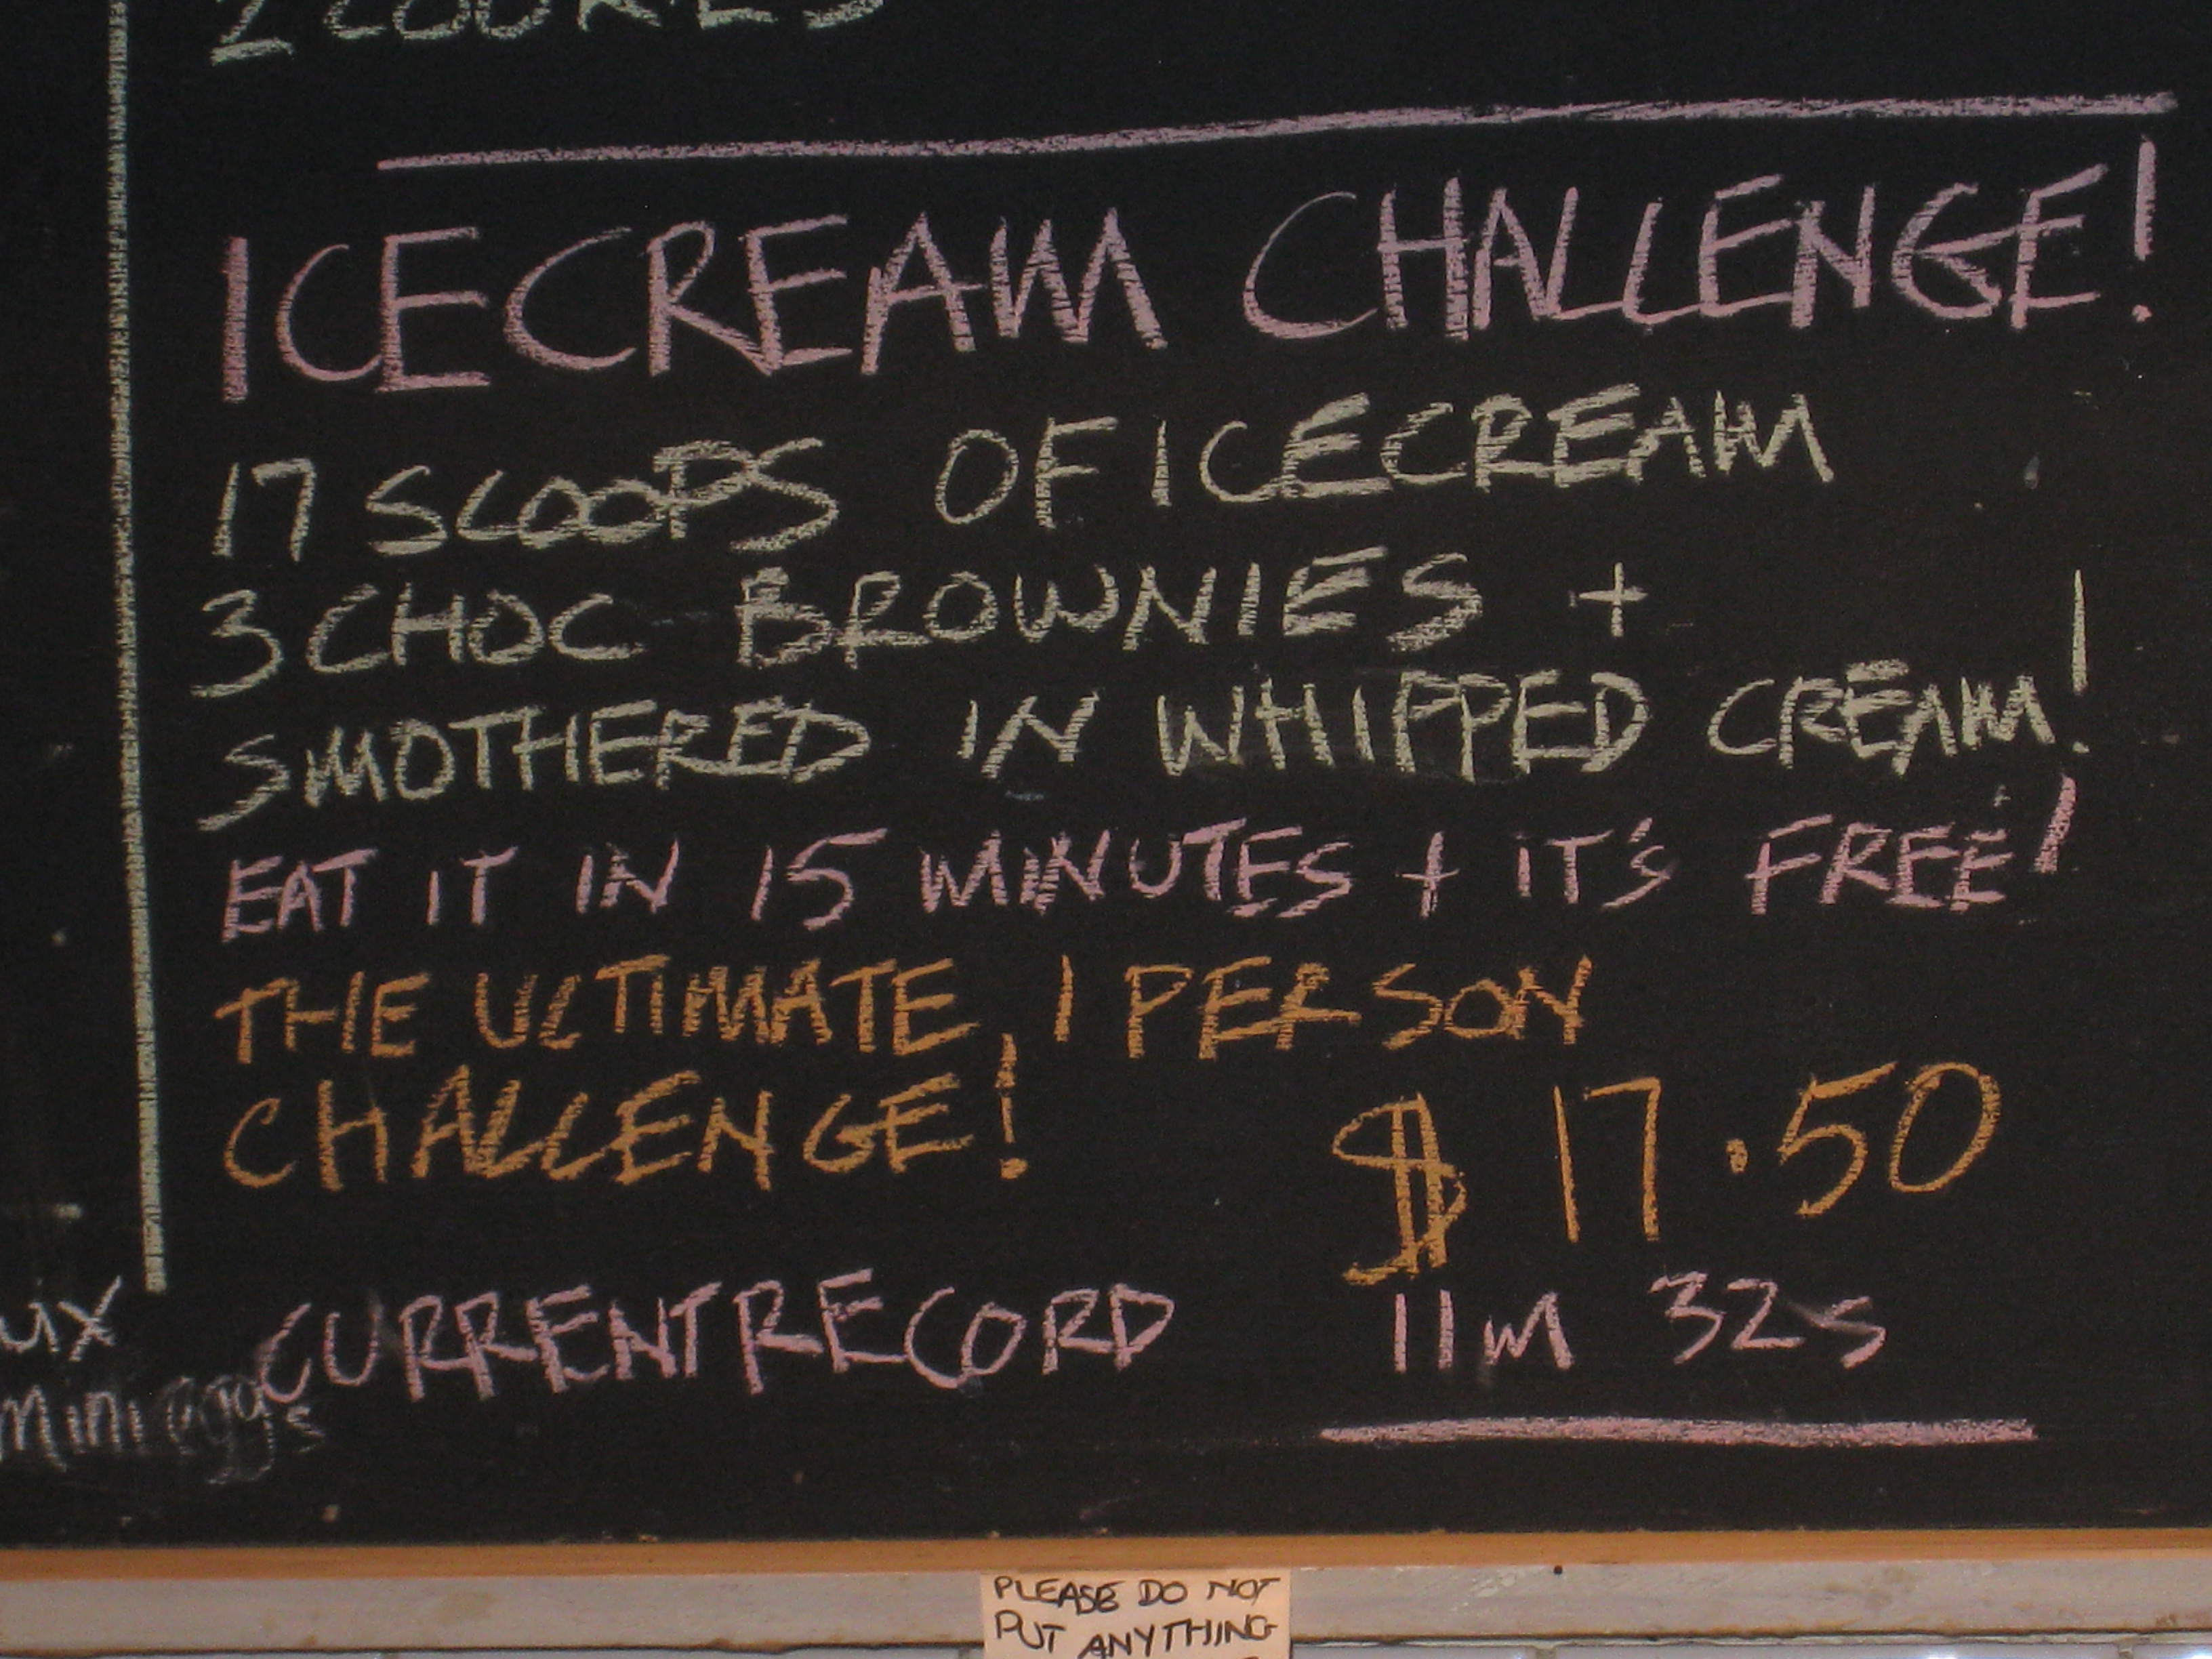 2 COOKIES
ICECREAM CHALLENGE!
17 SCOOPS OF ICECREAM
3 CHOC BROWNIES +
SMOTHERED IN WHIPPED CREAM!
EAT IT IN 15 MINUTES + IT'S FREE!
THE ULTIMATE 1 PERSON
CHALLENGE!
$17.50
CURRENT RECORD 11m 32s
ux
mini eggs
PLEASE DO NOT
PUT ANYTHING